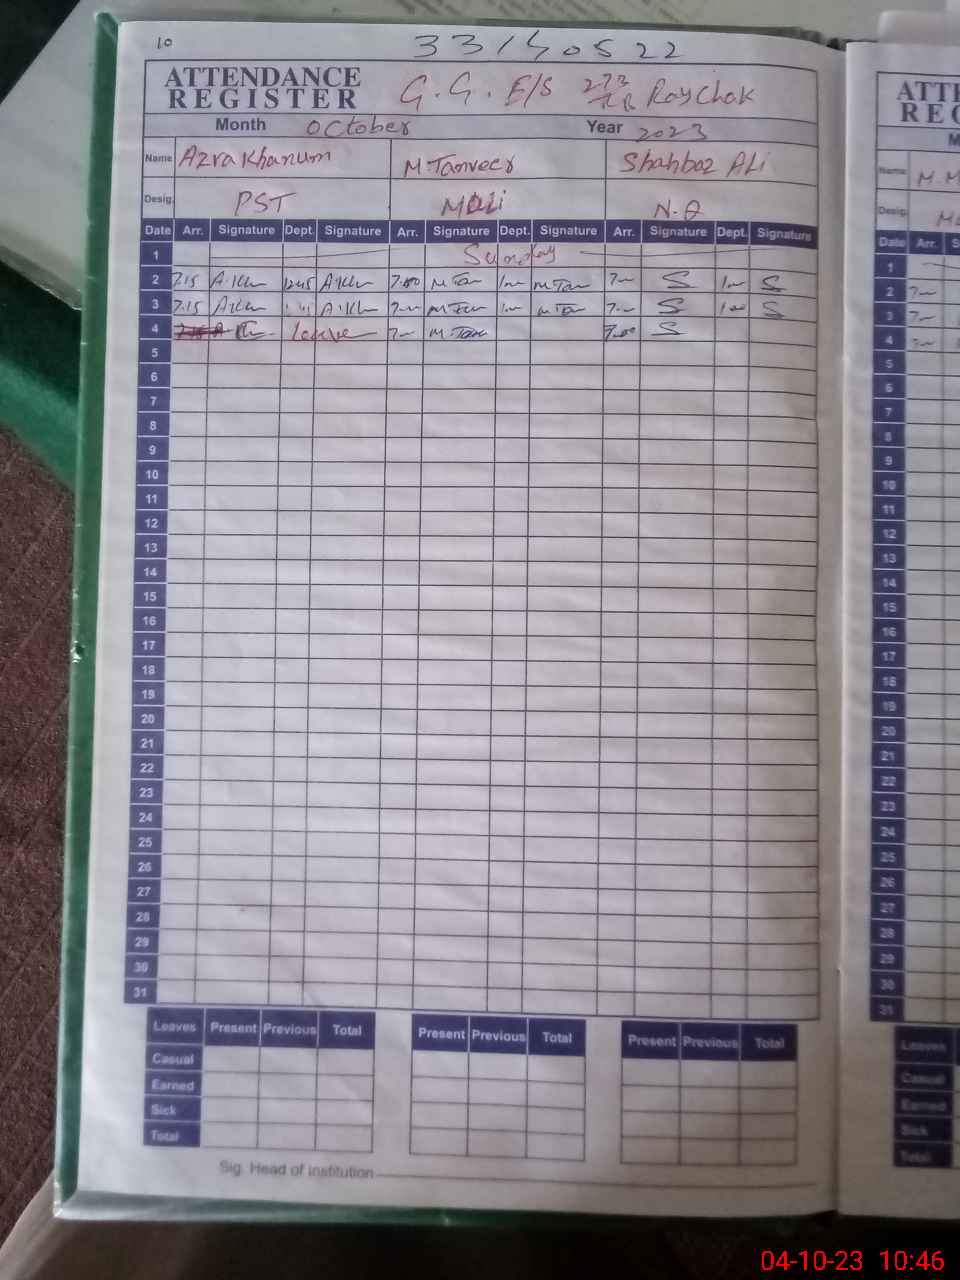 10
33140522
ATTENDANCE REGISTER G.G. E/S 273 Raychak
Month October Year 2023
Name Azra Khanum M. Tanveer Shahbaz Ali
Desig. PST Mali N.Q
Date Arr. Signature Dept. Signature Arr. Signature Dept. Signature Arr. Signature Dept. Signature
1 Sunday
2 7.15 A.Kh 12.45 A.Kh 7.00 M Tan M Tan S S
3 7.15 A.Kh A.Kh M Tan M Tan S S
4 leave M.Tan 7.00 S
5
6
7
8
9
10
11
12
13
14
15
16
17
18
19
20
21
22
23
24
25
26
27
28
29
30
31
Leaves Present Previous Total Present Previous Total Present Previous Total
Casual
Earned
Sick
Total
Sig. Head of institution
ATTE
REG
M
Name M.M
Desig.
Date Arr. S
1
2
3
4
5
6
7
8
9
10
11
12
13
14
15
16
17
18
19
20
21
22
23
24
25
26
27
28
29
30
31
Leaves
Casual
Earned
Sick
Total
04-10-23 10:46